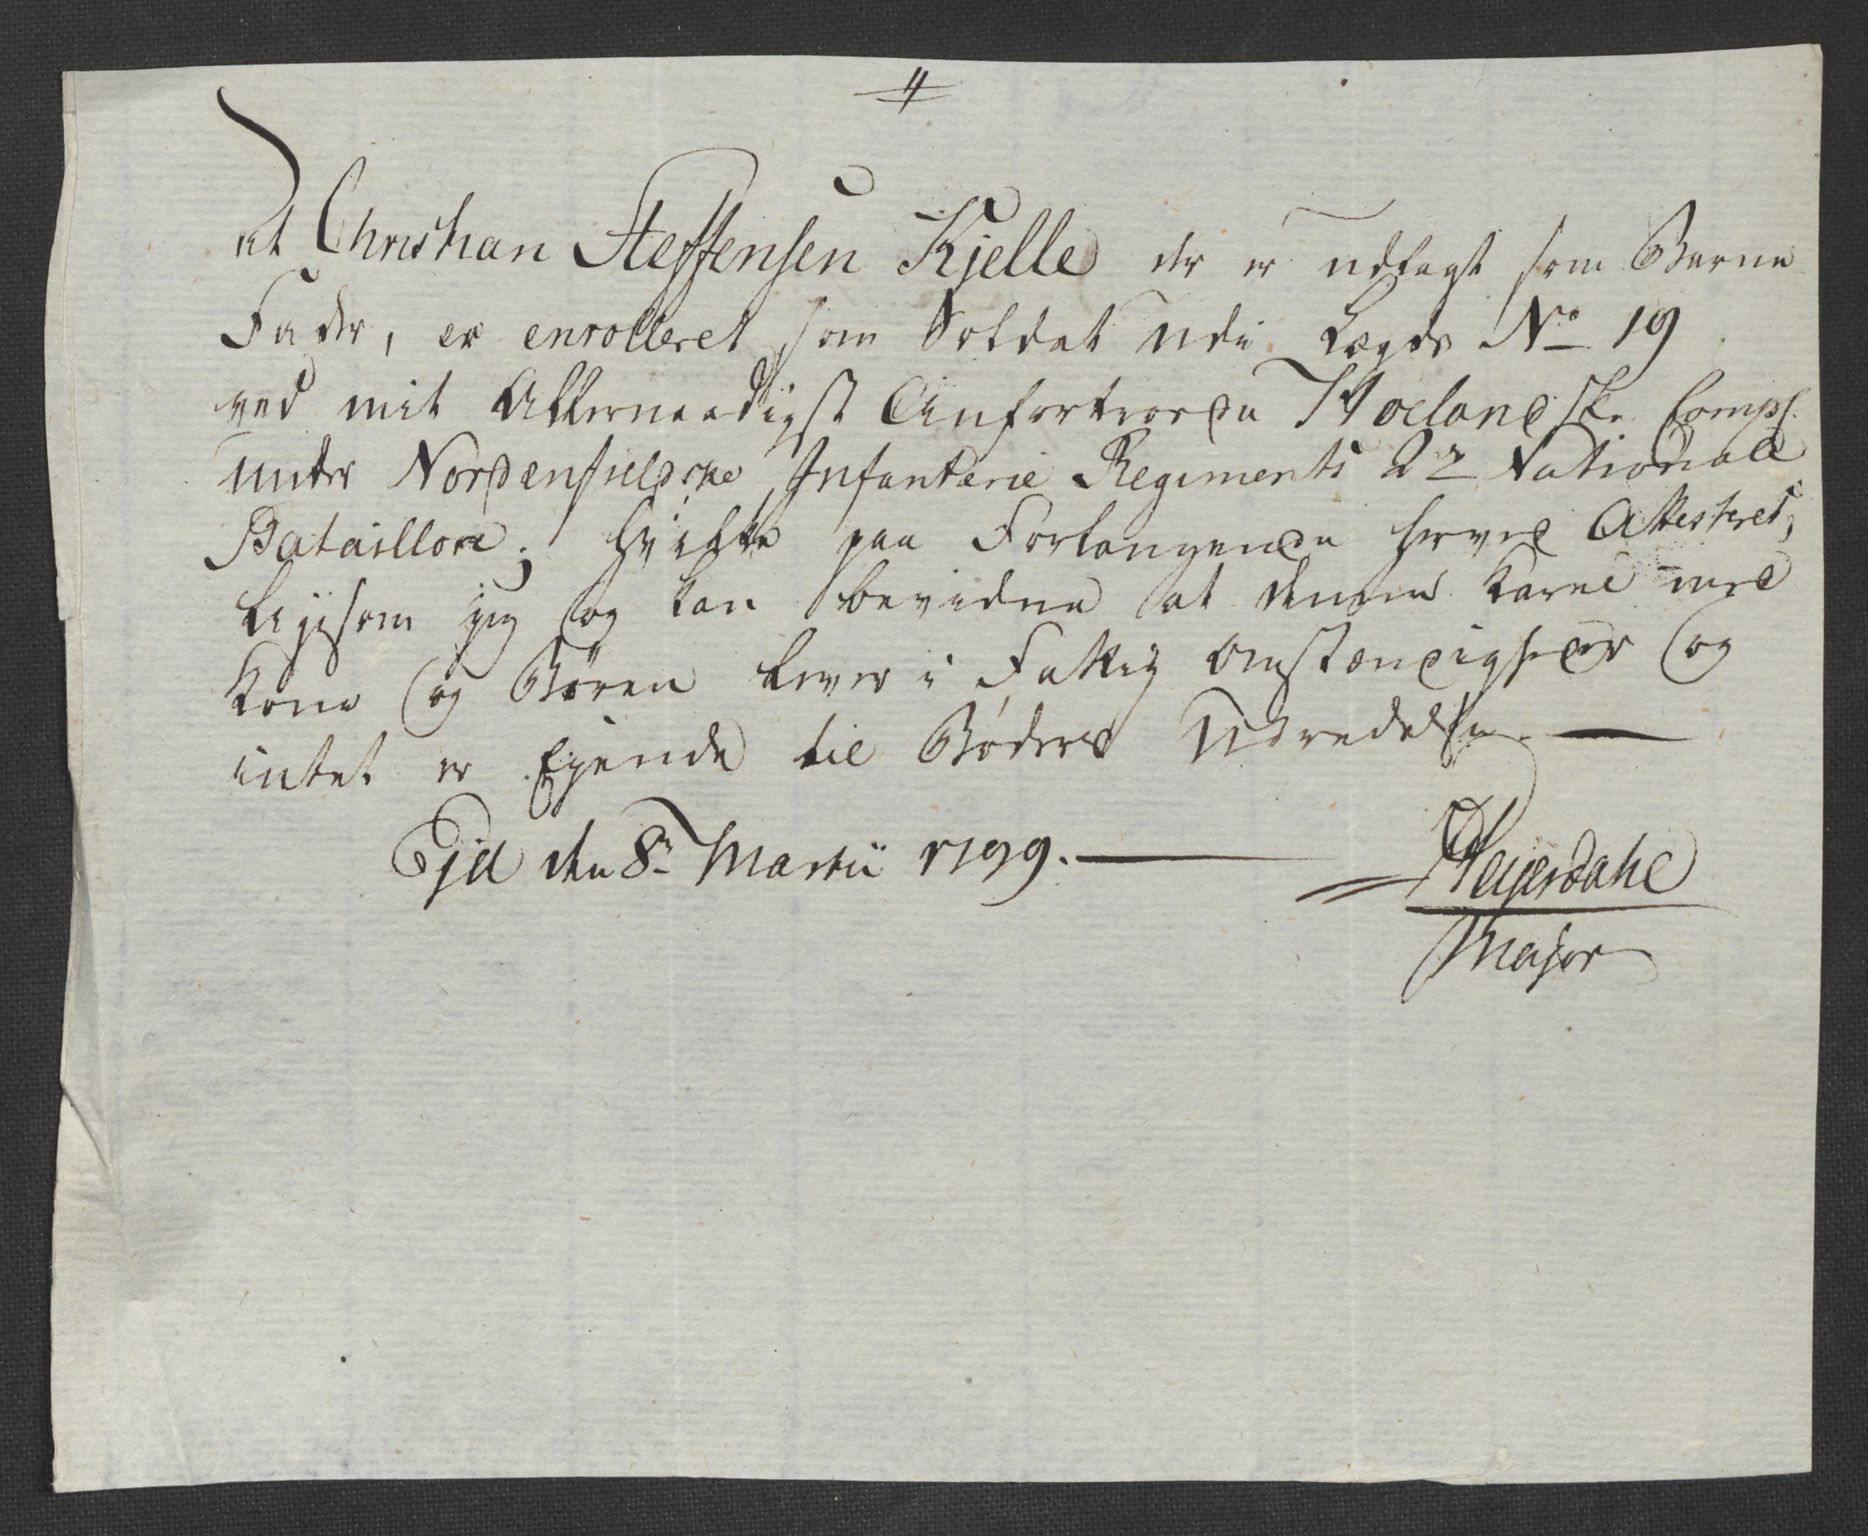 4
At Christian Steffensen Kjelle der er udlagt som Barne
Fader, er enrolleret som Soldat udi Lægds No 19
ved mit Allernaadigst Anfortroede Hoelandske Comp:
under Nordenfieldske Infanterie Regiments 2de Nationale
Bataillon; hvilket paa Forlangende herved Attesteret,
Ligesom jeg og kan bevidne at denne Karl med
Kone og Børen lever i Fattig Omstændigheder og
intet er Ejende til Bøders Udredelse.
den 8de Martii 1799.
Heyerdahl
Major